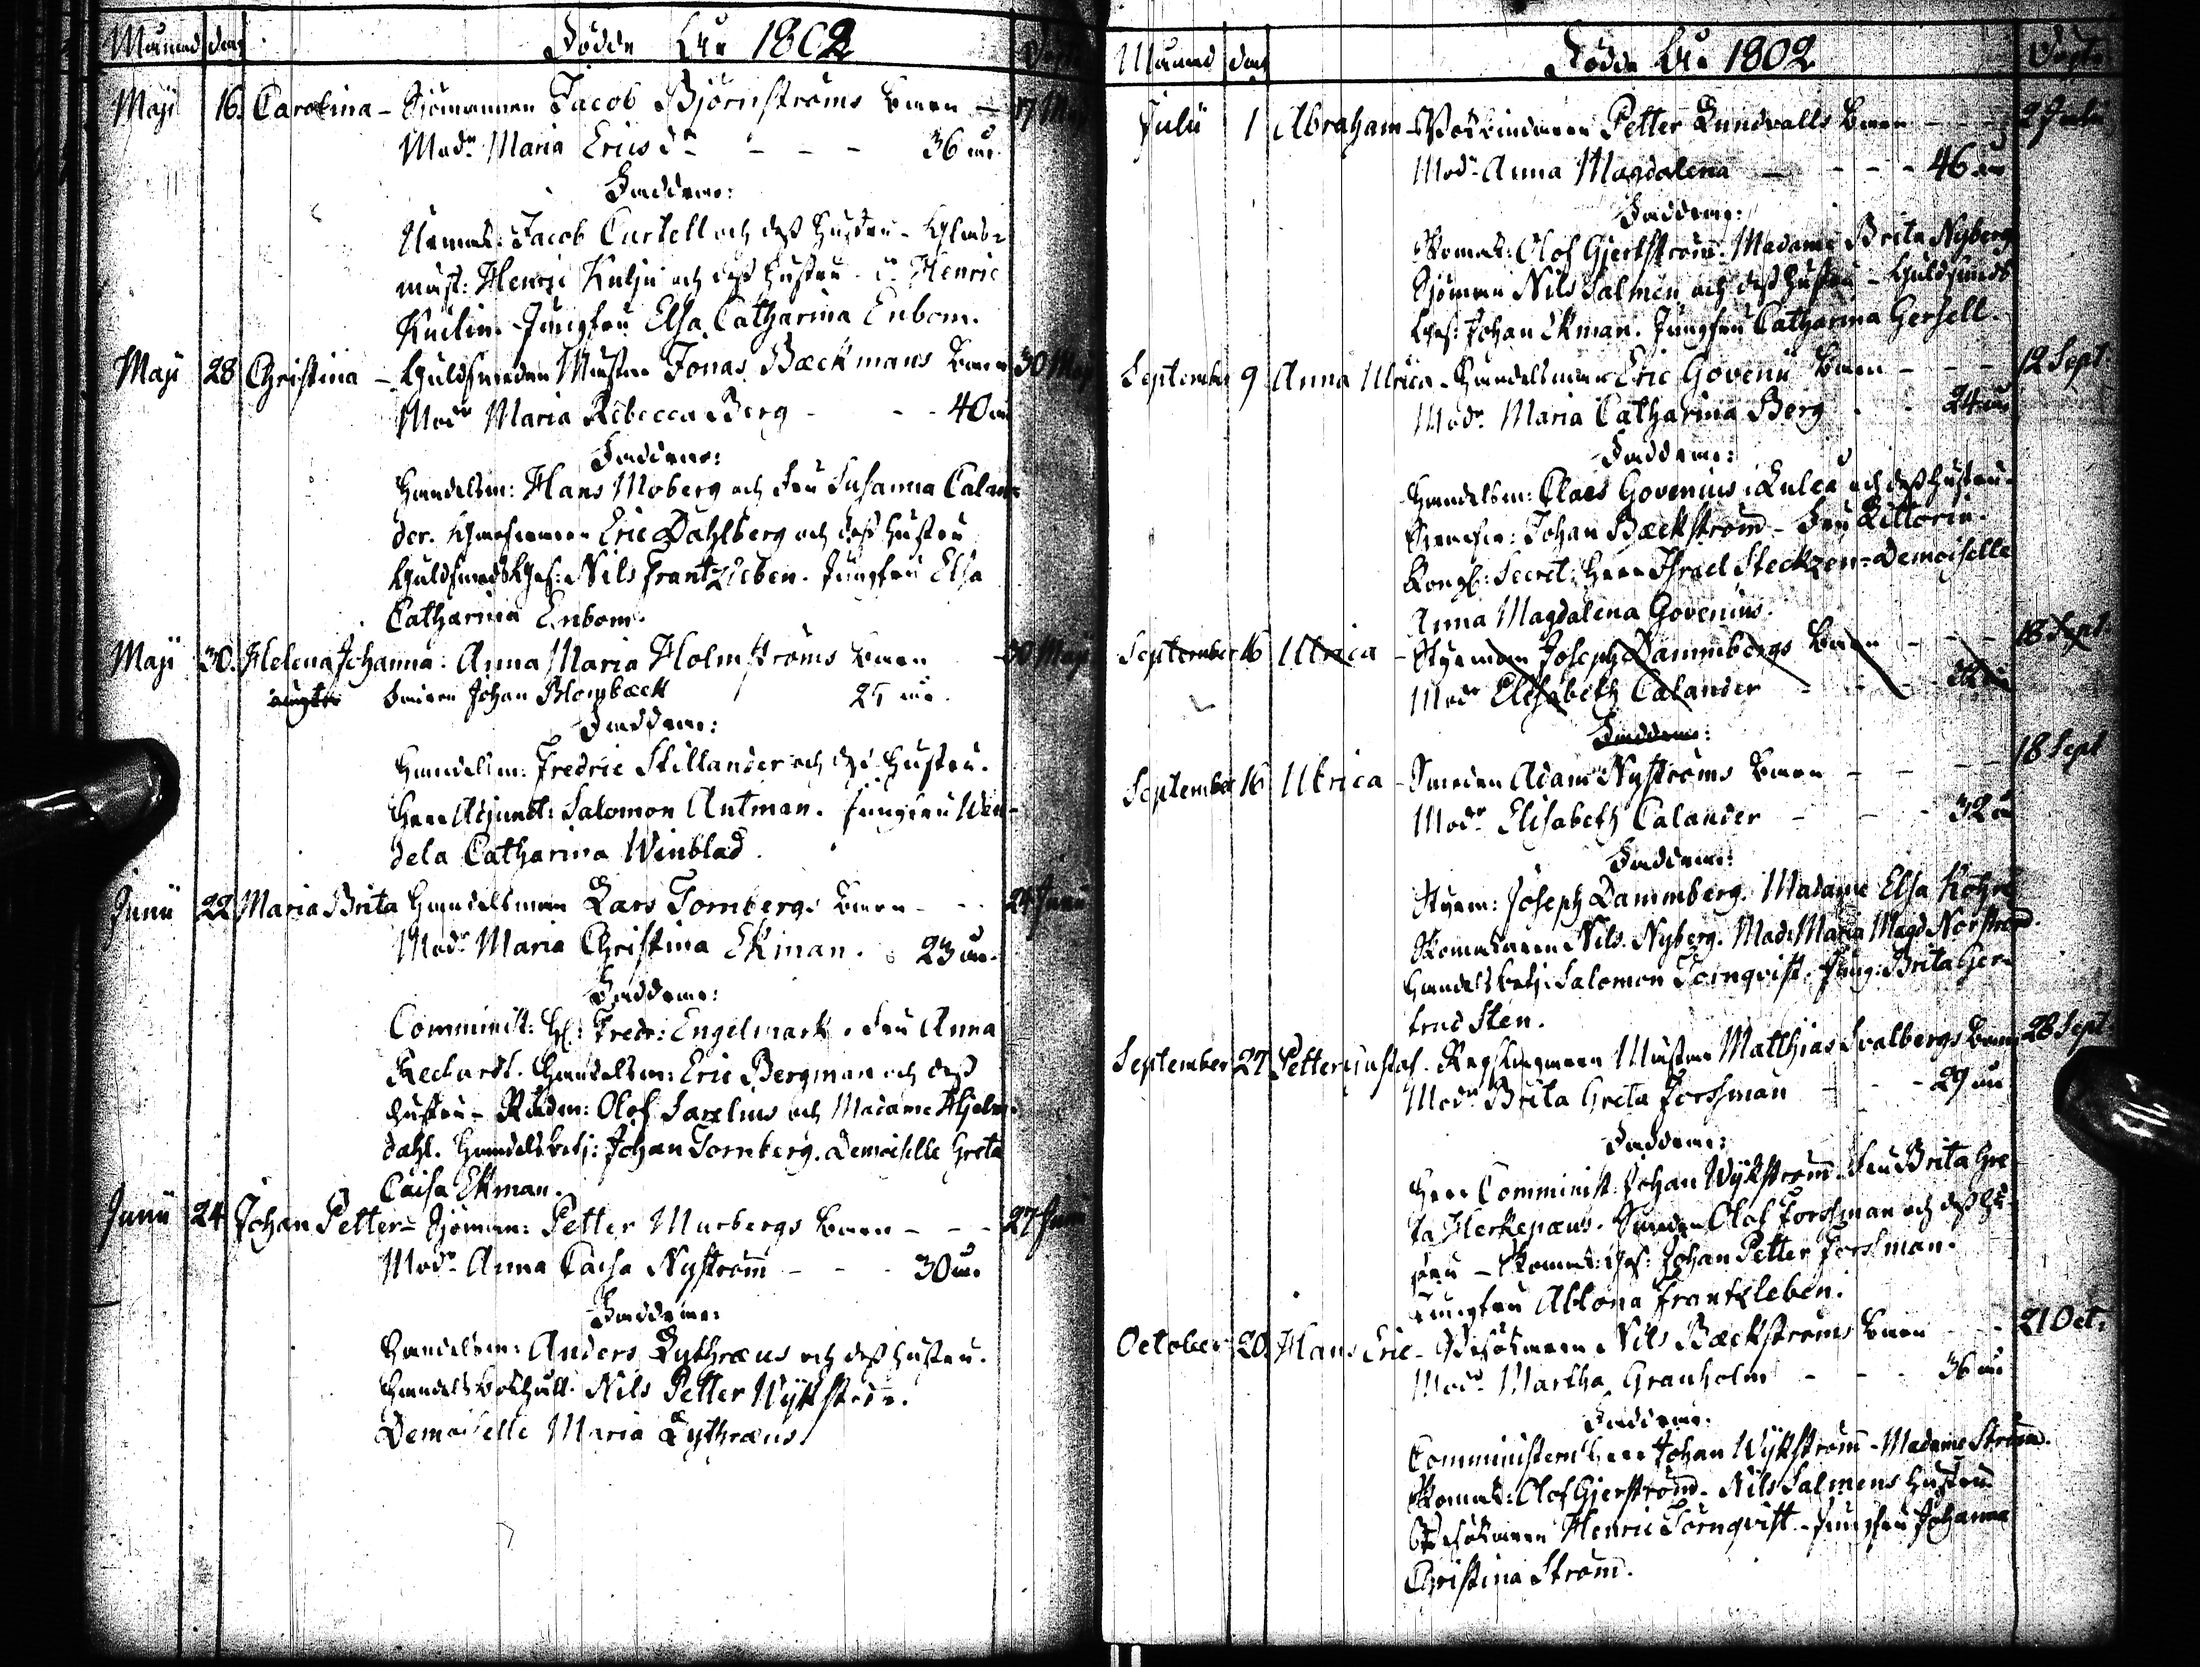 Månad dag Födde År 1802 Döpte
Maji 16. Carolina - Sjömannen Jacob Björnströms Barn - 17 Maj
Modr Maria Ericsdr - - - 36 år.
Faddrar:
Jacob Curtell och dess hustru - Glas-
mäst: Henric och dess hustru. Henric
Jungfru Elsa Catharina Enbom.
Maji 28 Christina - Guldsmeden Mäster Jonas Bæckmans Barn 30 Maj
Modr Maria Rebecca Berg - - - 40 år
Faddrar:
Handelsm: Hans Moberg och Fru Susanna Calan-
der. Eric Dahlberg och dess hustru
Guldsmeds Ges: Nils Frantzleben. Jungfru Elsa
Catharina Enbom.
Maji 30. Helena Johanna: Anna Maria Holmströms Barn 30 Maji
oägta Fadren Johan Blombæck 25 år.
Faddrar:
Handelsm: Fredric Stillander och dess hustru.
Herr Adjunct: Salomon Antman. Jungfru Wen-
dela Catharina Winblad.
Junii 22 Maria Brita Handelsman Lars Tornbergs Barn - - - 24 Junii
Modr Maria Christina Ekman. 23 år.
Faddrar:
Comminist: H: Fredr: Engelmark. Fru Anna
Rechardt. Handelsm: Eric Bergman och dess
hustru - Rådm: Olof Sarelius och Madame Hjelm-
dahl. Handels betj: Johan Tornberg. Demoiselle Greta
Caisa Ekman.
Junii 24 Johan Petter - Sjöman: Petter Murbergs Barn - - - 27 Junii
Modr Anna Caisa Nyström - - - 30 år.
Faddrar:
Handelsm: Anders Lythræus och dess hustru.
Handels Bokhåll. Nils Petter Wykström.
Demoiselle Maria Lythræus.
Månad dag Födde År 1802 Döpte
Julii 1 Abraham - Petter Lundvalls Barn - - - 2 Julii
Modr Anna Magdalena - - - - 46 år
Faddrar:
Skomak: Olof Gjerfström. Madame Brita Nyberg
Sjöman Nils Salmén och dess hustru - Guldsmeds
Ges: Johan Ekman. Jungfru Catharina Gersell.
September 9 Anna Ulrica - Handelsman Eric Govenii Barn - - - 12 Sept.
Modr Maria Catharina Berg - - 24 år
Faddrar:
Handelsm: Claes Govenius i Luleå och dess hustru.
Johan Bæckström - Fru Rittorin.
Kongl: Secret: Herr Israel Steckzen - Demoiselle
Anna Magdalena Govenius.
September 16 Ulrica - Styrman Joseph Dammbergs Barn - - - 18 Sept.
Modr Elisabeth Calander - - - 32 år
Faddrar:
September 16 Ulrica - Smeden Adam Nyströms Barn - - - 18 Sept
Modr Elisabeth Calander - - - 32 år
Faddrar:
Styrm: Joseph Dammberg. Madame Elsa
Skomakaren Nils Nyberg. Mad: Maria Magd Norström.
Handels betj: Salomon Törnqvist. Jung: Brita Ger-
trud Sten.
September 27 Petter Gustaf - Mäster Matthias Svalbergs Barn 28 Sept.
Modr Brita Greta Forssman - - - 29 år
Faddrar:
Herr Comminist: Johan Wykström. Fru Brita Gre-
ta Herkepæus. Smeden Olof Forssman och dess hu-
stru - Skomak: Ges: Johan Petter Forssman.
Jungfru Ablona Frantzleben.
October 20. Hans Eric - Nils Bæckströms Barn - 21 Oct.
Modr Martha Granholm - - - 36 år
Faddrar:
Comministern Herr Johan Wykström - Madame Ström.
Skomak: Olof Gjerfström. Nils Salmens hustru
Henric Törnqvist - Jungfru Johanna
Christina Ström.